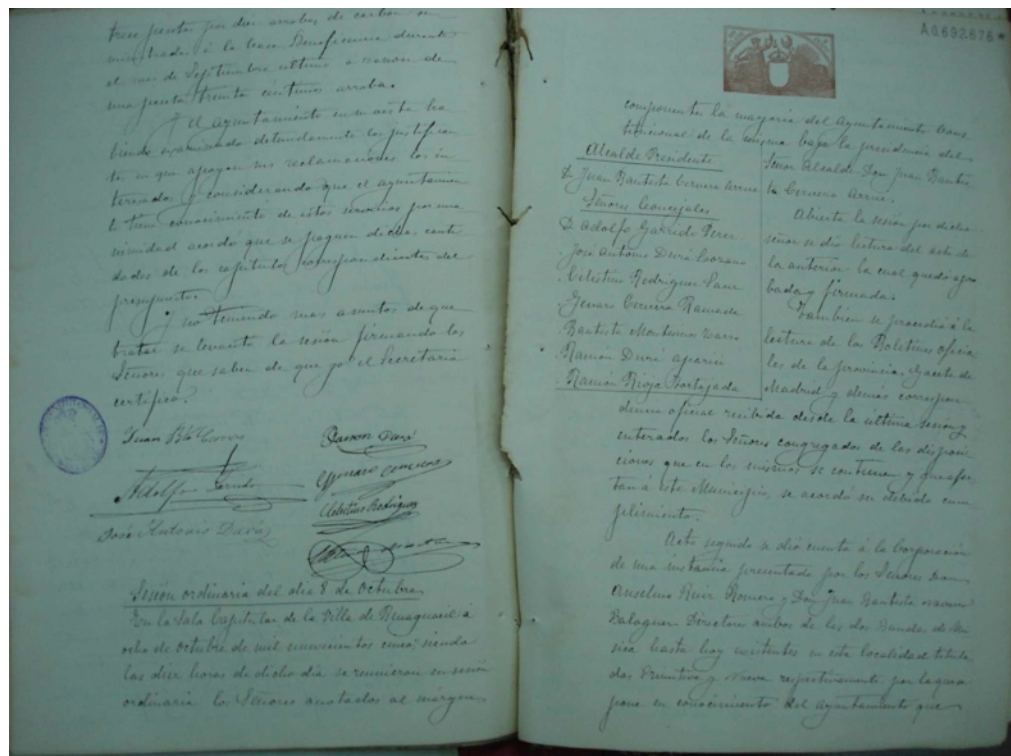 trece pesetas por diez arrobas de carbón su
ministradas á la Casa Beneficencia durante
el mes de Septiembre ultimo á razon de
una peseta treinta centimos arroba.
Y el ayuntamiento en su vista ha
biendo examinado detenidamente los justifican
tes en que apoyan sus reclamaciones los in
teresados y considerando que el ayuntamien
to tiene conocimiento de estos servicios por una
nimidad acordó que se paguen dichas canti
dades de los capitulos correspondientes del
presupuesto.
Y no teniendo mas asuntos de que
tratar se levantó la sesión firmando los
Señores que saben de que yo el Secretario
certifico.
Juan Bta Cervera
Ramon Durá
Adolfo Garrido
Genaro Cervera
Celestino Rodriguez
José Antonio Durá
Sesión ordinaria del dia 8 de Octubre
En la Sala Capitular de la Villa de Benaguacil á
ocho de Octubre de mil novecientos cinco; siendo
las diez horas de dicho dia se reunieron en sesión
ordinaria los Señores anotados al márgen
A.0.692.676 *
componente la mayoria del Ayuntamiento Cons
titucional de la misma bajo la presidencia del
Alcalde Presidente
D. Juan Bautista Cervera Arrue
Señores Concejales
D. Adolfo Garrido Perez
José Antonio Durá Lozano
Celestino Rodriguez Sanz
Genaro Cervera Ramada
Bautista Montesinos
Ramón Durá Aparisi
Ramón Rioja Portajada
Señor Alcalde Don Juan Bautis
ta Cervera Arrue.
Abierta la sesión por dicho
señor se dió lectura del acta de
la anterior la cual quedó apro
bada y firmada.
Tambien se procedió á la
lectura de los Boletines oficia
les de la provincia, Gaceta de
Madrid y demás correspon
dencia oficial recibida desde la ultima sesión y
enterados los Señores congregados de las disposi
ciones que en los mismos se contiene y que afec
tan á este Municipio, se acordó su debido cum
plimiento.
Acto seguido se dió cuenta á la Corporación
de una instancia presentada por los Señores Don
Anselmo Ruiz Romero y Don Juan Bautista Navarro
Balaguer Directores ambos de las dos Bandas de Mú
sica hasta hoy existentes en esta localidad titula
das Primitiva y Nueva respectivamente por la que se
pone en conocimiento del Ayuntamiento que